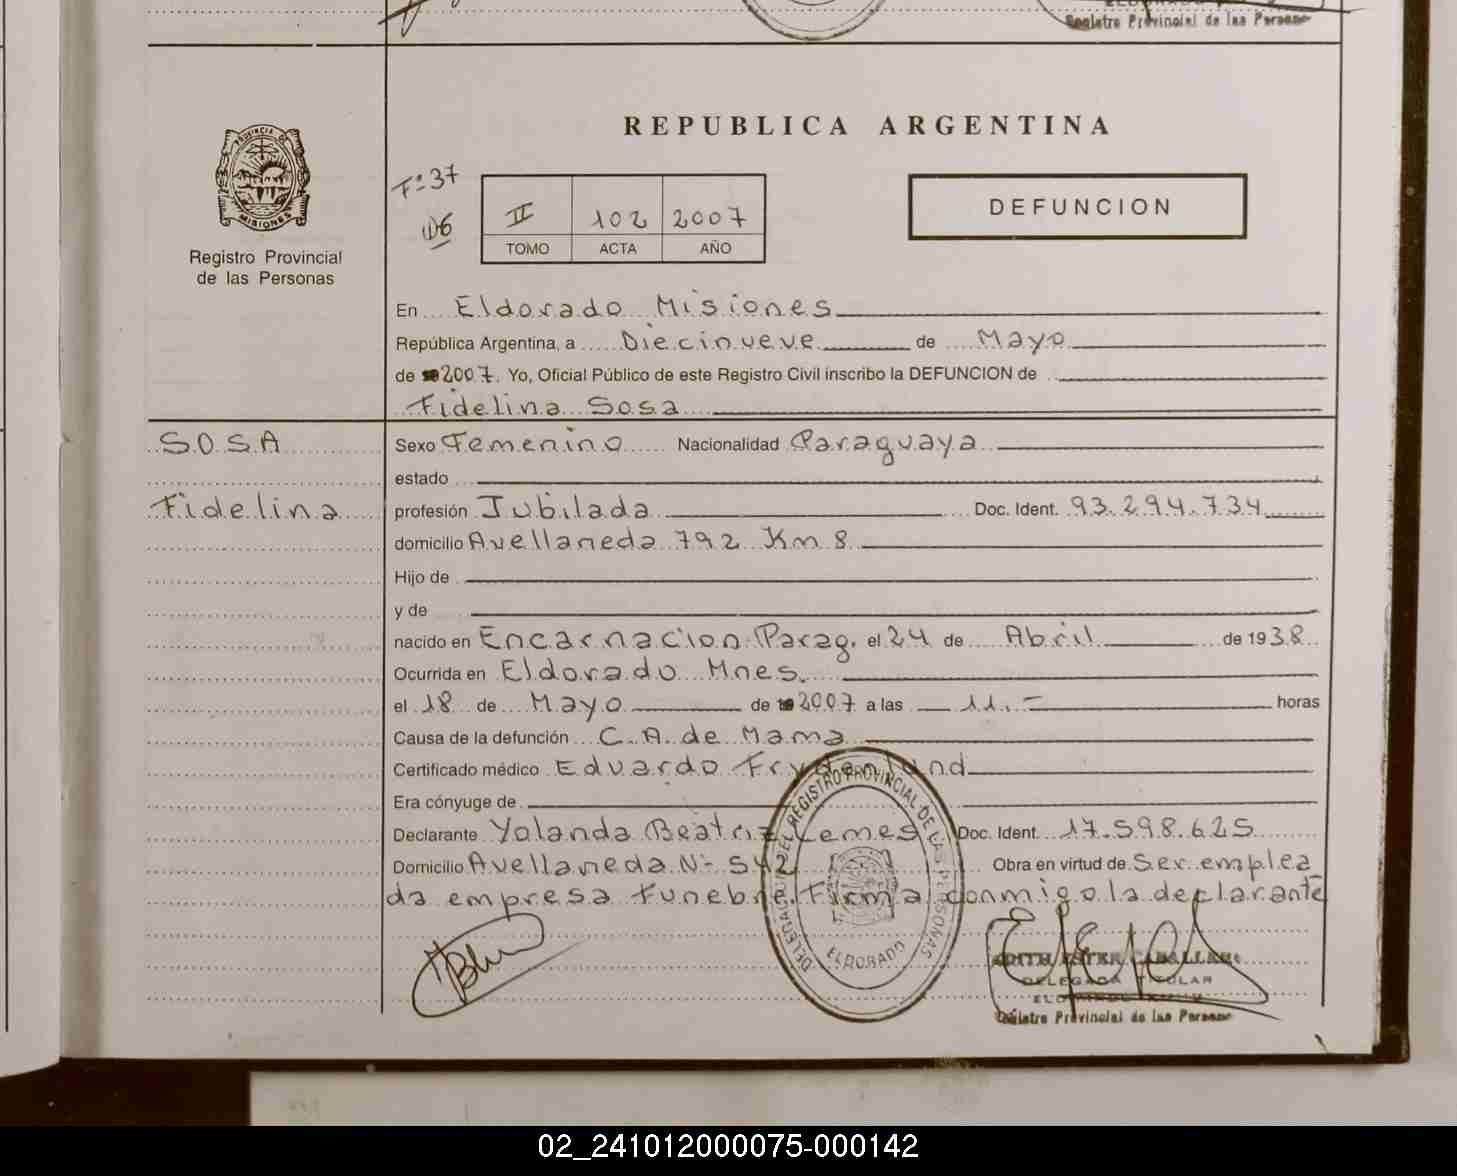 Registro Provincial de las Personas
REPUBLICA ARGENTINA
PROVINCIA DE
MISIONES
Registro Provincial
de las Personas
Fº 37
II 102 2007
TOMO ACTA AÑO
DEFUNCION
En Eldorado Misiones
República Argentina, a Diecinueve de Mayo
de 2007. Yo, Oficial Público de este Registro Civil inscribo la DEFUNCION de
Fidelina Sosa
SOSA
Fidelina
Sexo Femenino Nacionalidad Paraguaya
estado
profesión Jubilada Doc. Ident. 93.294.734
domicilio Avellaneda 792 Km 8
Hijo de
y de
nacido en Encarnacion Parag. el 24 de Abril de 1938
Ocurrida en Eldorado Mnes.
el 18 de Mayo de 2007 a las 11.- horas
Causa de la defunción C.A. de Mama
Certificado médico Eduardo Frydenlund
Era cónyuge de
Declarante Yolanda Beatriz Lemes Doc. Ident. 17.598.625
Domicilio Avellaneda Nº 542 Obra en virtud de Ser emplea
da empresa Funebre. Firma conmigo la declarante
DELEGACION DEL REGISTRO PROVINCIAL DE LAS PERSONAS
ELDORADO
EDITH ESTER CABALLERO
DELEGADA TITULAR
Registro Provincial de las Personas
02_241012000075-000142